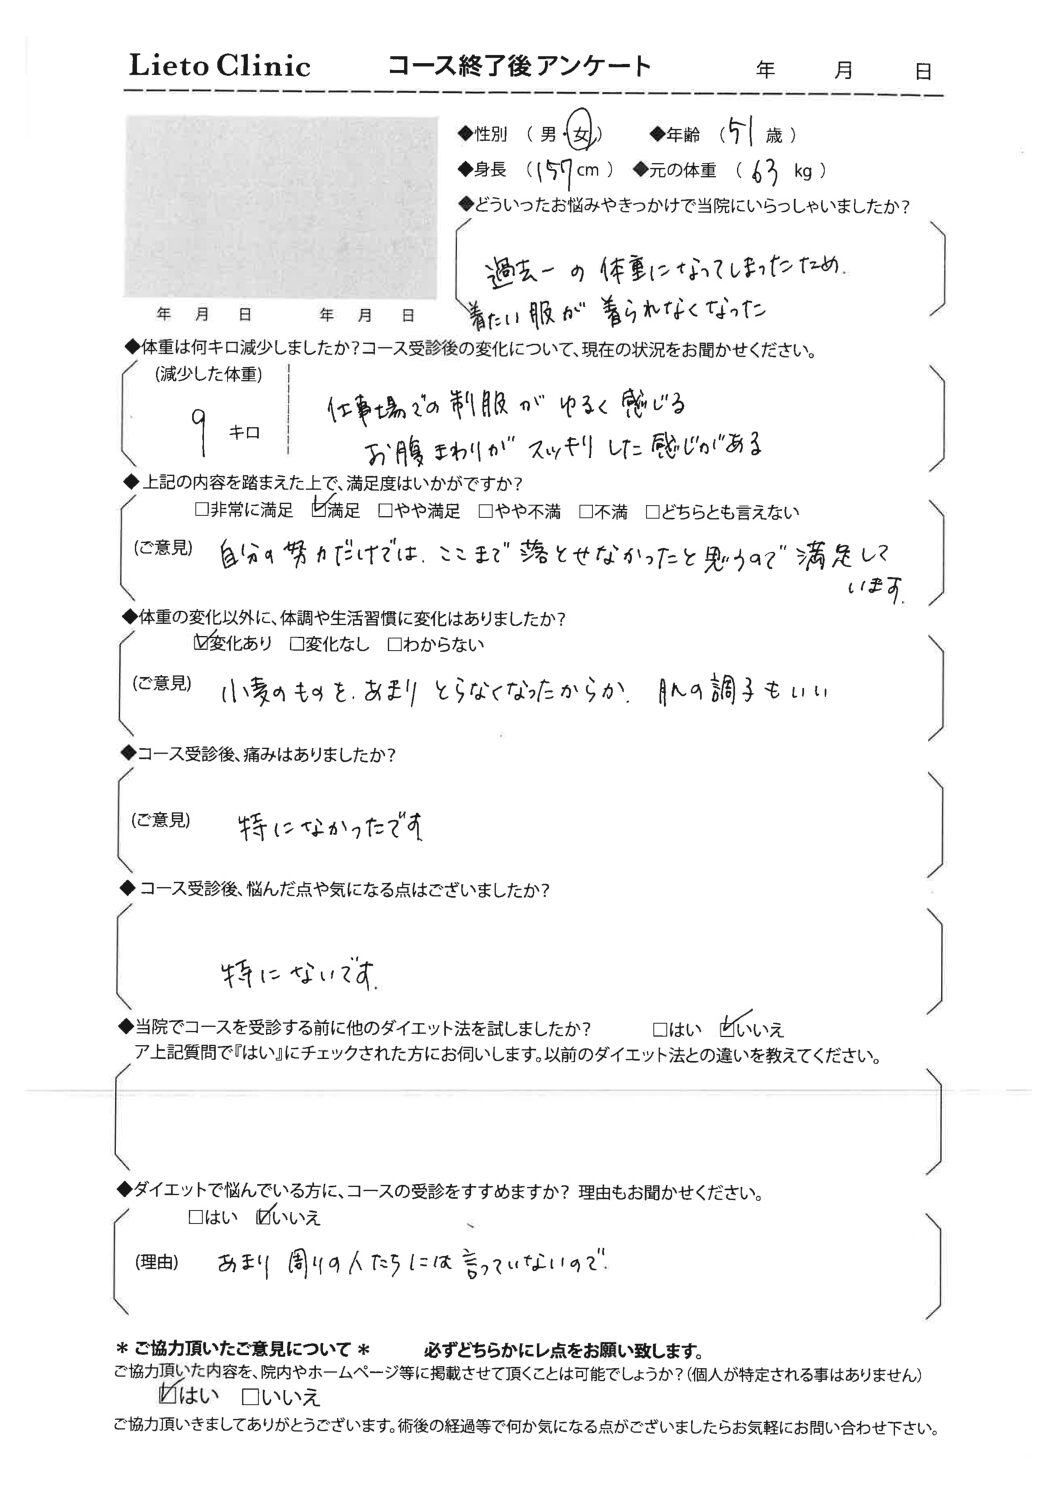 Lieto Clinic コース終了後アンケート 年 月 日
◆性別 （ 男・女 ） ◆年齢 （ 51 歳 ）
◆身長 （ 157 cm ） ◆元の体重 （ 63 kg ）
◆どういったお悩みやきっかけで当院にいらっしゃいましたか？
過去一の体重になってしまったため、
着たい服が着られなくなった
年 月 日 年 月 日
◆体重は何キロ減少しましたか？コース受診後の変化について、現在の状況をお聞かせください。
(減少した体重)
9 キロ
仕事場での制服がゆるく感じる
お腹まわりがスッキリした感じがある
◆ 上記の内容を踏まえた上で、満足度はいかがですか？
□非常に満足 ☑満足 □やや満足 □やや不満 □不満 □どちらとも言えない
(ご意見) 自分の努力だけでは、ここまで落とせなかったと思うので満足して
います。
◆体重の変化以外に、体調や生活習慣に変化はありましたか？
☑変化あり □変化なし □わからない
(ご意見) 小麦のものを、あまりとらなくなったからか、肌の調子もいい
◆コース受診後、痛みはありましたか？
(ご意見) 特になかったです
◆ コース受診後、悩んだ点や気になる点はございましたか？
特にないです。
◆当院でコースを受診する前に他のダイエット法を試しましたか？ □はい ☑いいえ
ア上記質問で『はい』にチェックされた方にお伺いします。以前のダイエット法との違いを教えてください。
◆ダイエットで悩んでいる方に、コースの受診をすすめますか？ 理由もお聞かせください。
□はい ☑いいえ
(理由) あまり周りの人たちには言っていないので。
＊ ご協力頂いたご意見について ＊ 必ずどちらかにレ点をお願い致します。
ご協力頂いた内容を、院内やホームページ等に掲載させて頂くことは可能でしょうか？(個人が特定される事はありません)
☑はい □いいえ
ご協力頂いきましてありがとうございます。術後の経過等で何か気になる点がございましたらお気軽にお問い合わせ下さい。